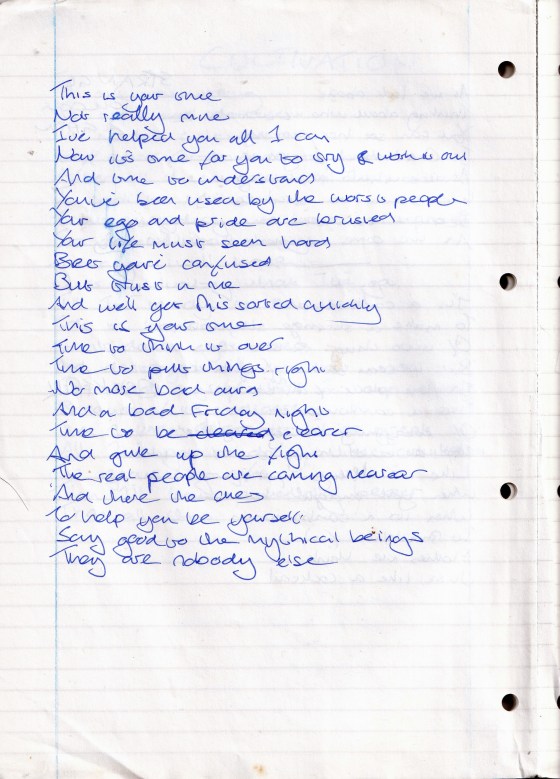 This is your time
Not really mine
I've helped you all I can
Now it's time for you to try & work it out
And time to understand
You've been used by the worst people
Your ego and pride are bruised
Your life must seem hard
you're confused
But trust in me
And we'll get this sorted quickly
This is your time
Time to think it over
Time to put things right
No more bad
And a bad Friday night
Time to be clearer
And give up the fight
The real people are coming nearer
And there the ones
To help you be yourself
Say good to the mythical beings
They are nobody else